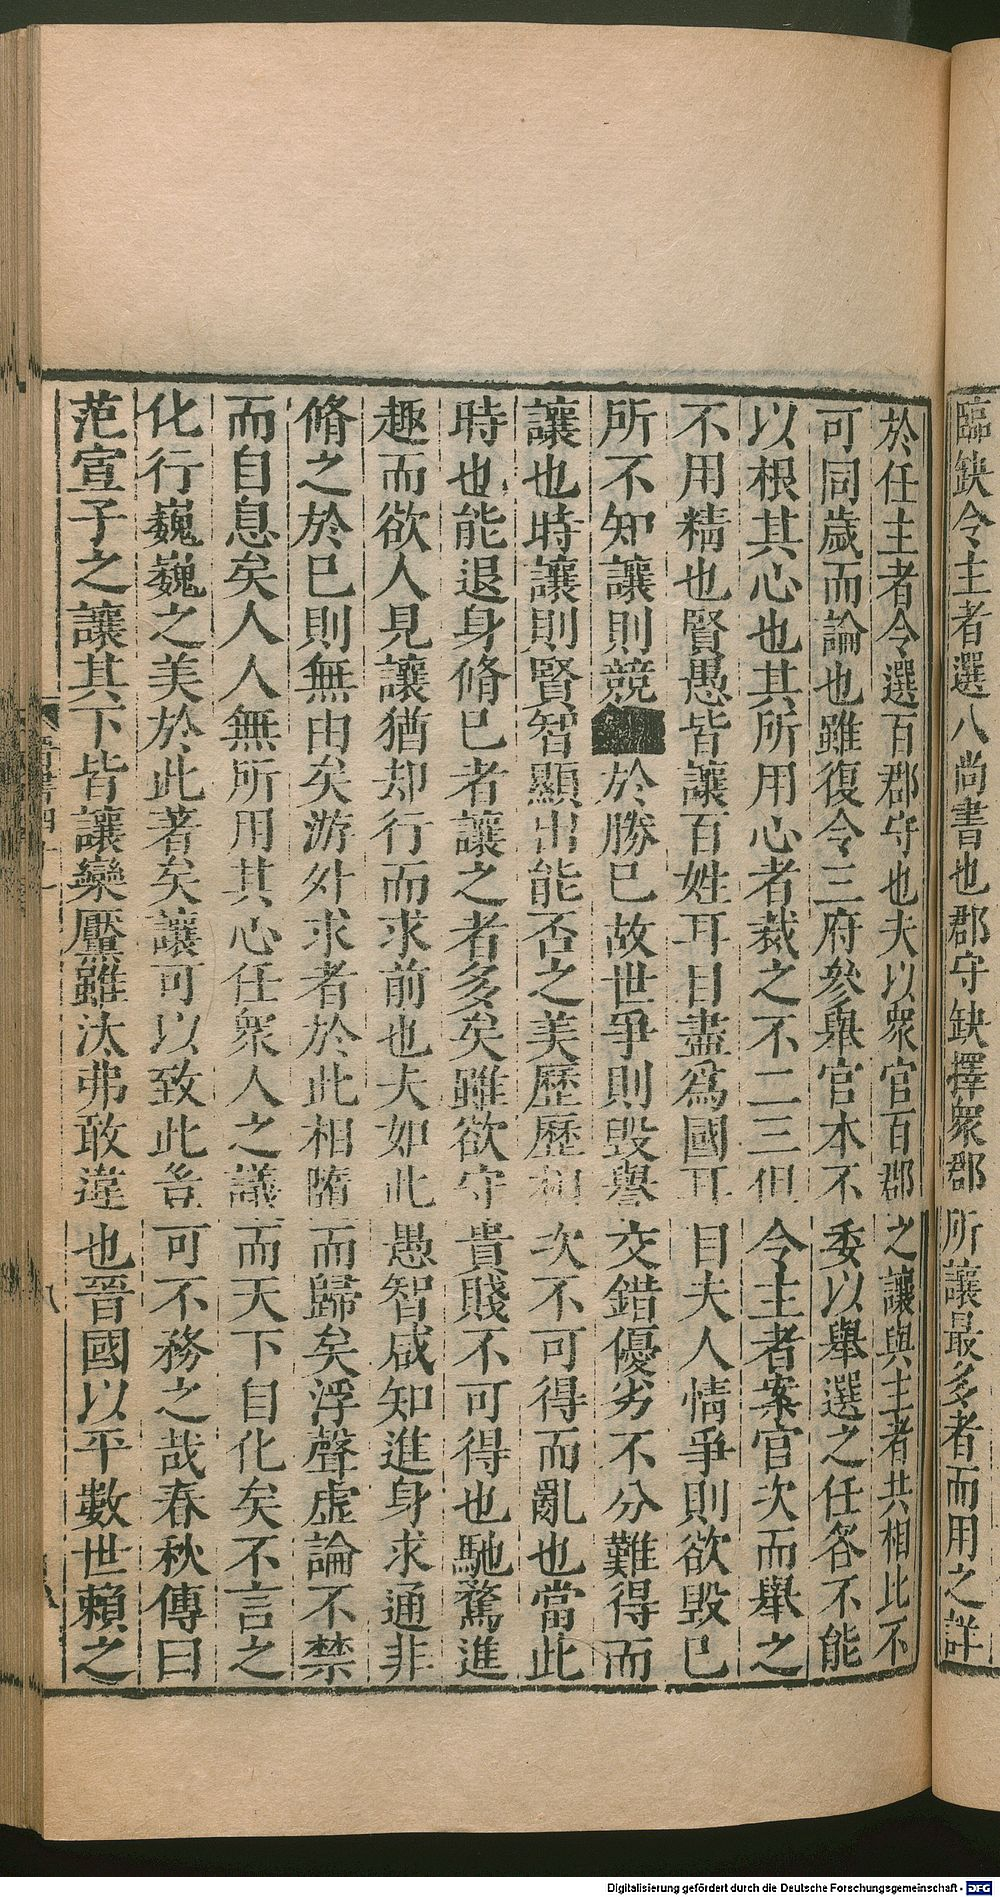 臨缺令主者選八尚書也郡守缺擇衆郡所讓最多者而用之詳
於任主者令選百郡守也夫以衆官百郡之讓與主者共相比不
可同歲而論也雖復令三府參舉官本不委以舉選之任各不能
以根其心也其所用心者裁之不二三但令主者案官次而舉之
不用精也賢愚皆讓百姓耳目盡爲國耳目夫人情爭則欲毀已
所不知讓則競於勝已故世爭則毀譽交錯優劣不分難得而
讓也時讓則賢智顯出能否之美歷歷相次不可得而亂也當此
時也能退身脩已者讓之者多矣雖欲守貴賤不可得也馳騖進
趣而欲人見讓猶却行而求前也夫如此愚智咸知進身求通非
脩之於已則無由矣游外求者於此相隨而歸矣浮聲虛論不禁
而自息矣人人無所用其心任衆人之議而天下自化矣不言之
化行巍巍之美於此著矣讓可以致此豈可不務之哉春秋傳曰
范宣子之讓其下皆讓欒黶雖汰弗敢違也晉國以平數世賴之
晉書四十一
八
Digitalisierung gefördert durch die Deutsche Forschungsgemeinschaft - DFG